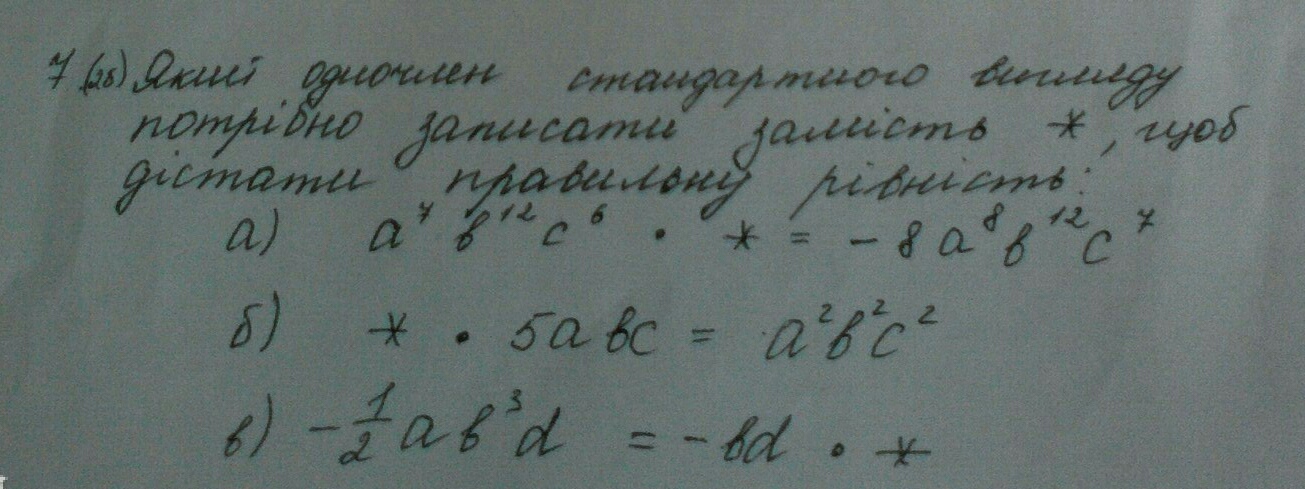 7 (2б) Який одночлен стандартного вигляду
потрібно записати замість *, щоб
дістати правильну рівність:
а) a⁷ b¹² c⁶ · * = - 8 a⁸ b¹² c⁷
б) * · 5abc = a²b²c²
в) - 1/2 a b³ d = - bd · *